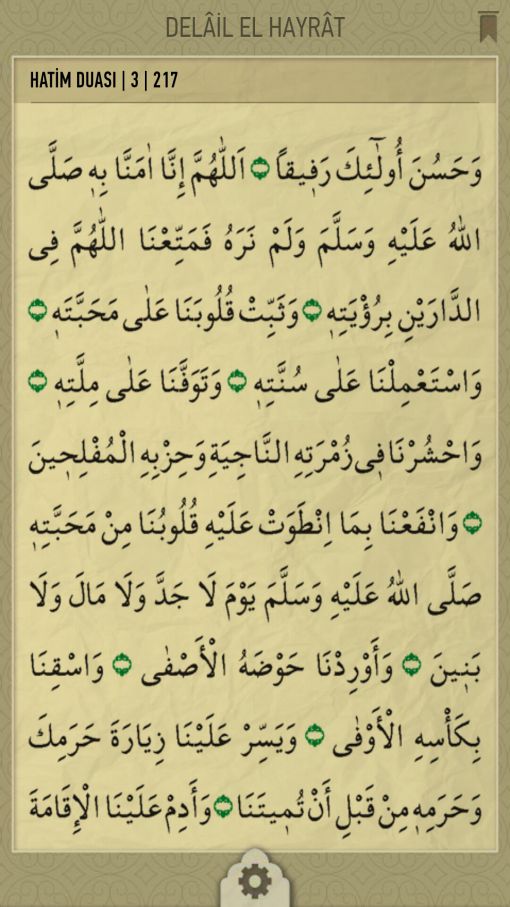 DELÂİL EL HAYRÂT
HATİM DUASI | 3 | 217
وَحَسُنَ أُولٰٓئِكَ رَفٖيقاً ۝ اَللّٰهُمَّ إِنَّا اٰمَنَّا بِهٖ صَلَّى
اللّٰهُ عَلَيْهِ وَسَلَّمَ وَلَمْ نَرَهُ فَمَتِّعْنَا اللّٰهُمَّ فِى
الدَّارَيْنِ بِرُؤْيَتِهٖ ۝ وَثَبِّتْ قُلُوبَنَا عَلٰى مَحَبَّتِهٖ ۝
وَاسْتَعْمِلْنَا عَلٰى سُنَّتِهٖ ۝ وَتَوَفَّنَا عَلٰى مِلَّتِهٖ ۝
وَاحْشُرْنَا فٖى زُمْرَتِهِ النَّاجِيَةِ وَحِزْبِهِ الْمُفْلِحٖينَ
۝ وَانْفَعْنَا بِمَا اِنْطَوَتْ عَلَيْهِ قُلُوبُنَا مِنْ مَحَبَّتِهٖ
صَلَّى اللّٰهُ عَلَيْهِ وَسَلَّمَ يَوْمَ لَا جَدَّ وَلَا مَالَ وَلَا
بَنٖينَ ۝ وَأَوْرِدْنَا حَوْضَهُ الْأَصْفٰى ۝ وَاسْقِنَا
بِكَأْسِهِ الْأَوْفٰى ۝ وَيَسِّرْ عَلَيْنَا زِيَارَةَ حَرَمِكَ
وَحَرَمِهٖ مِنْ قَبْلِ أَنْ تُمٖيتَنَا ۝ وَأَدِمْ عَلَيْنَا الْإِقَامَةَ